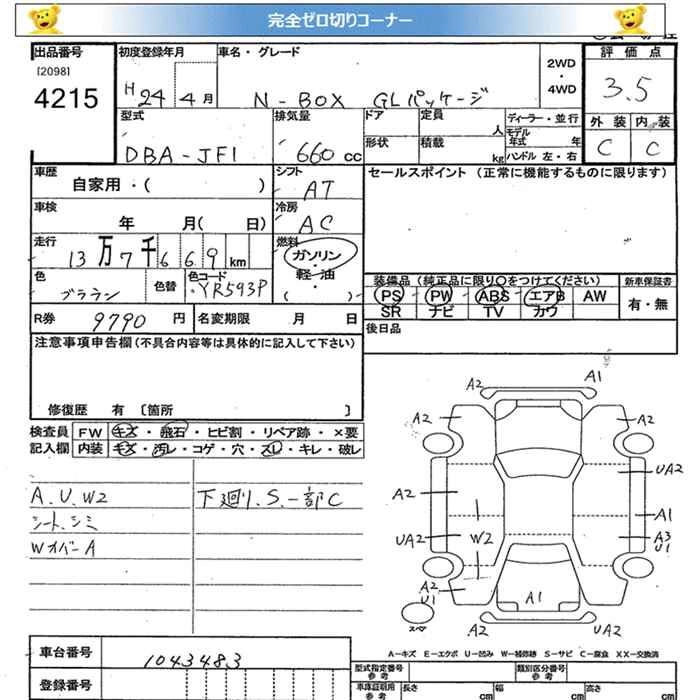 完全ゼロ切りコーナー
出品番号 初度登録年月 車名・グレード 評価点
[2098]
4215
H24 4月 N-BOX GLパッケージ 2WD・4WD 3.5
型式 排気量 ドア 定員 人 ディーラー・並行 外装 内装
DBA-JF1 660cc 形状 積載 kg モデル年式 年 ハンドル 左・右 C C
車歴 自家用・( ) シフト AT セールスポイント (正常に機能するものに限ります)
車検 年 月( 日) 冷房 AC
走行 13万7千669km 燃料 ガソリン・軽油 ( )
色 ブララン 色替 色コード YR593P
装備品 (純正品に限り○をつけてください) 新車保証書
PS PW ABS エアB AW 有・無
SR ナビ TV カワ
R券 9790円 名変期限 月 日 後日品
注意事項申告欄 (不具合内容等は具体的に記入して下さい)
修復歴 有 〔箇所 〕
検査員 FW キズ・飛石・ヒビ割・リペア跡・×要
記入欄 内装 キズ・汚レ・コゲ・穴・スレ・キレ・破レ
A.U.W2 下廻リ.S.一部C
シート.シミ
WオバーA
A2 A1
A2 A2
A2 UA2
UA2 W2 A1
A3
U1
A2
U1 A1
スペア A2 UA2
A-キズ E-エクボ U-凹み W-補修跡 S-サビ C-腐食 XX-交換済
車台番号 1043483
登録番号
型式指定番号 参考 類別区分番号 参考
車庫証明用 参考 長さ cm 幅 cm 高さ cm